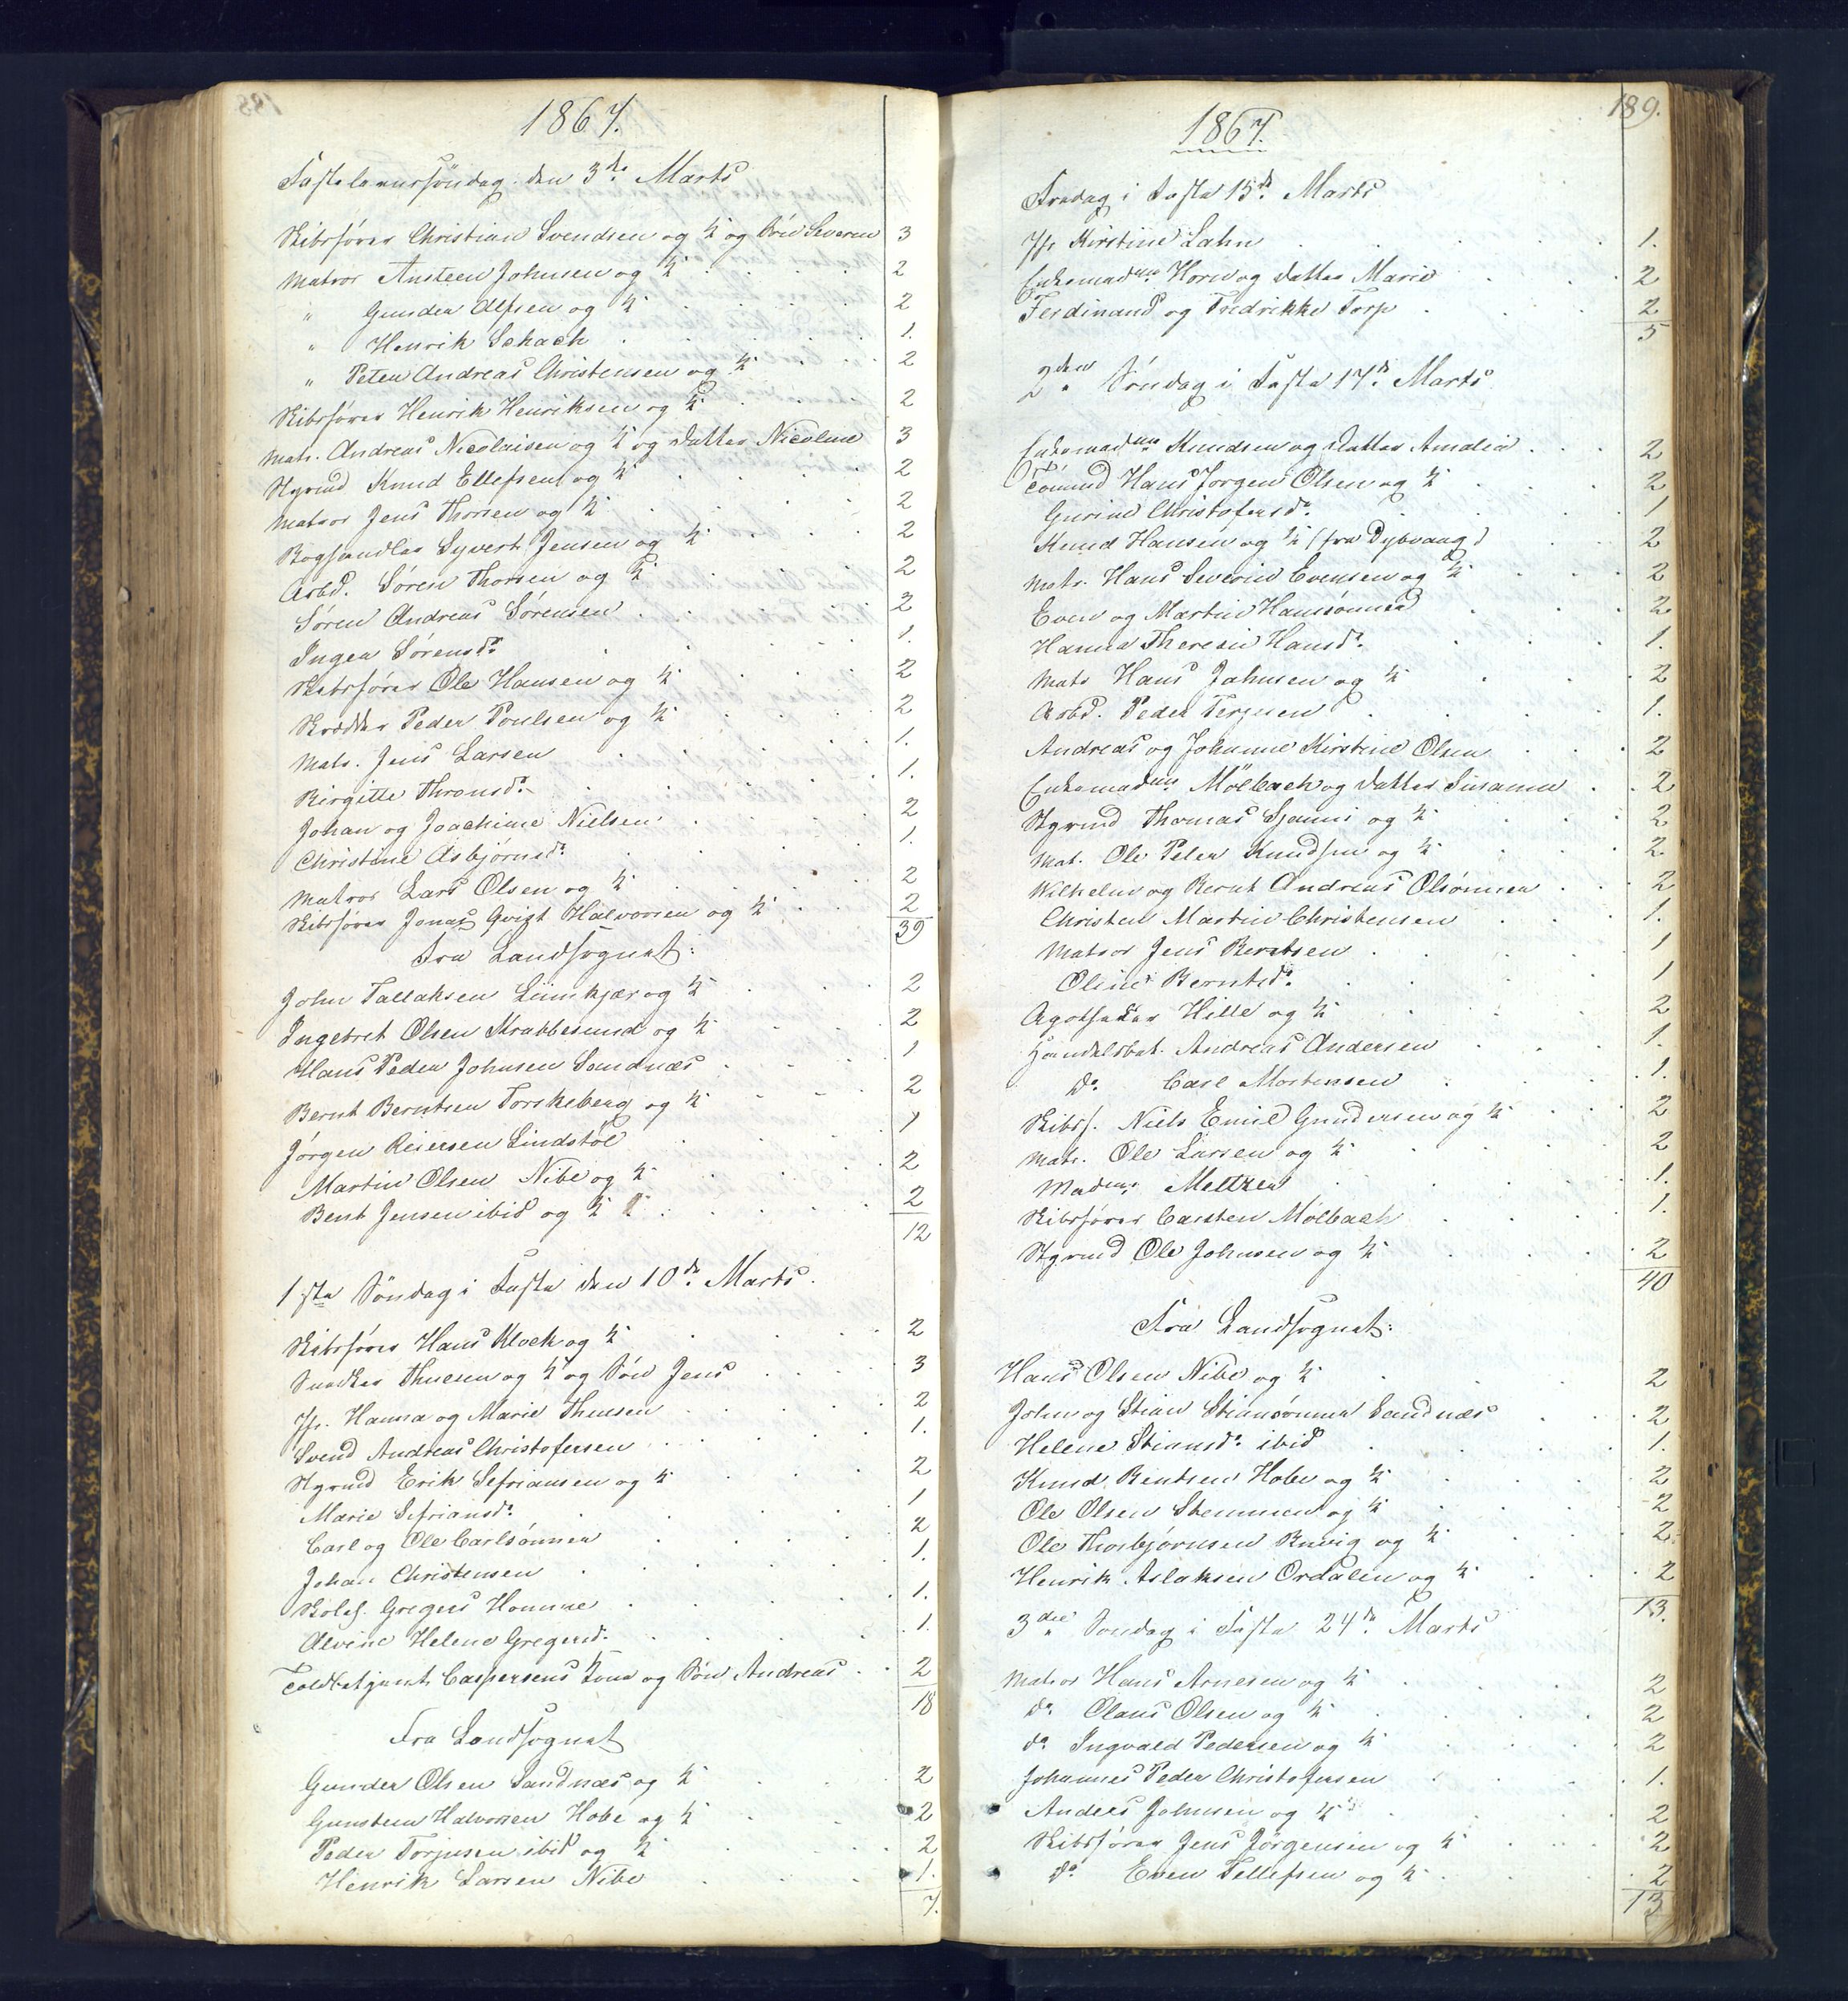 1867.
Fastelavnssöndag den 3de Marts
Skibsfører Christian Svendsen og K og Sön Severin 3
Matros Austeen Johnsen og K 2
" Gunder Olsen og K 2
" Henrik Schach 1.
" Peter Andreas Christensen og K 2
Skibsfører Henrik Henriksen og K 2
Matr. Andreas Nicolaisen og K og Datter Nicoline 3
Stgrmd Knud Ellefsen og K 2
Matros Jens Thorsen og K 2
Boghandler Syvert Jensen og K 2
Arbd. Søren Thorsen og K 2
Søren Andreas Sörensen 2
Inger Sørensdr 1.
Skibsfører Ole Hansen og K 2
Skrædder Peder Poulsen og K 2
Matr. Jens Larsen 1.
Birgitte Thronsdr 1.
Johan og Joachime Nielsen 2
Christine Asbjørnsdr 1.
Matros Lars Olsen og K 2
Skibsfører Jonas Qvigt Halvorsen og K 2
39
Fra Landsognet:
John Tallaksen Liimkjær og K 2
Ingebret Olsen Krabbesund og K 2
Hans Peder Johnsen Sandnæs 1
Bernt Berntsen Torskeberg og K 2
Jörgen Reiersen Lindstöl 1
Martin Olsen Nibe og K 2
Bent Jensen ibid og K 2
12
1ste Söndag i Faste den 10de Marts.
Skibsfører Hans Klock og K 2
Snedker Thuesen og K og Sön Jens 3
Jfr. Hanna og Marie Thuesen 2
Svend Andreas Christofersen 1.
Stgrmd Erik Sefriansen og K 2
Marie Sefriansdr 1
Carl og Ole Carlsönner 2
Johan Christensen 1.
Skolel. Gregers Homme 1.
Alvine Helene Gregersd. 1.
Toldbetjent Caspersens Kone og Sön Andreas 2
18
Fra Landsognet
Gunder Olsen Sandnæs og K 2
Gunsten Halvorsen Hobe og K 2
Peder Torjusen ibid og K 2
Henrik Larsen Nibe 1.
7.
189.
1867.
Fredag i Faste 15de Marts
Jfr Kirstine Lahn 1.
Enkemadme Horn og Datter Marie 2
Ferdinand og Fredrikke Torp 2
5
2den Söndag i Faste 17de Marts
Enkemadme Knudsen og Datter Amalia 2
Tömmd Hans Jörgen Olsen og K 2
Gurine Christofersdr 1
Knud Hansen og K (fra Dybvaag) 2
Matr. Hans Severin Evensen og K 2
Even og Martin Hanssönner 2
Hanna Theresie Hansdr 1.
Matr Hans Johnsen og K 2
Arbd. Peder Terjesen 1.
Andreas og Johanne Kirstine Olsen 2
Enkemadme Mölbach og Datter Susanna 2
Stgrmd Thomas Sjauni og K 2
Mat. Ole Peter Knudsen og K 2
Wilhelm og Bernt Andreas Olsönner 2
Christen Martin Christensen 1.
Matros Jens Berntsen 1
Oline Berntsdr 1
Apotheker Hille og K 2
Handelsbet. Andreas Andersen 1.
Do Carl Mortensen 1.
Skibsf. Niels Emil Gundersen og K 2
Matr. Ole Larsen og K 2
Madme Meltzer 1.
Skibsfører Carsten Mölbach 1.
Stgrmd Ole Johnsen og K 2
40
Fra Landsognet:
Hans Olsen Nibe og K 2
John og Stian Stiansönner Sandnæs 2
Helene Stiansdr ibid 1.
Knud Bentsen Hobe og K 2
Ole Olsen Stemmen og K 2
Ole Thorbjørnsen Rævig og K 2
Henrik Aslaksen Ordalen og K 2
13.
3die Söndag i Faste 24de Marts
Matros Hans Arnesen og K 2
do Claus Olsen og K 2
do Ingvald Pedersen og K 2
Johannes Peder Christofersen 1.
Anders Johnsen og K 2
Skibsfører Jens Jörgensen og K 2
do Even Tellefsen og K 2
13